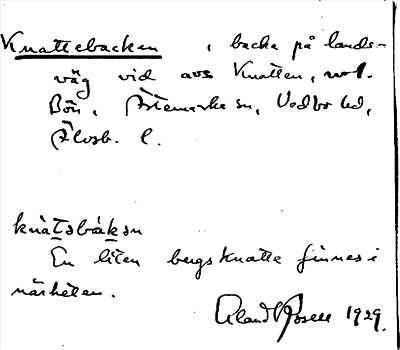 Knattebacken , backe på lands-
väg vid avs Knatten, nol.
Bön, Ärtemarks sn, Vedbo hd,
Älvsb. l.
knàtsbàksn
En liten bergsknatte finnes i
närheten.
Erland Rosell 1929.